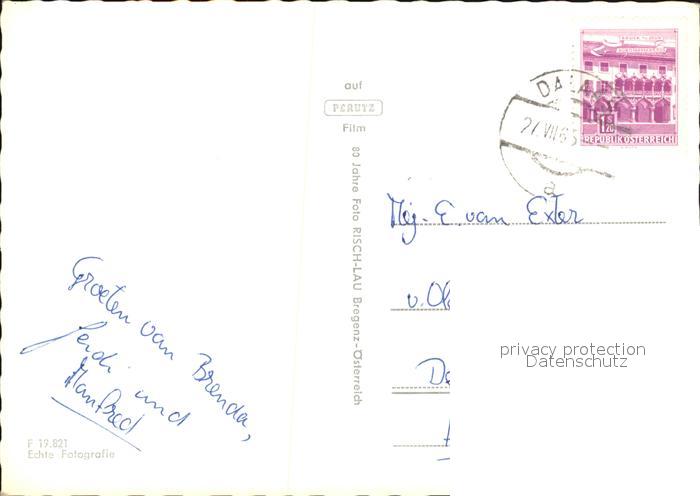 auf
PERUTZ
Film
80 Jahre Foto RISCH-LAU Bregenz-Österreich
DALAAS
27.VII.65
a
1.20
REPUBLIK ÖSTERREICH
Mej. E. van Exter
v. Ol
D
Groeten van Brenda,
Ferdi und
Manfred
F 19.821
Echte Fotografie
privacy protection
Datenschutz